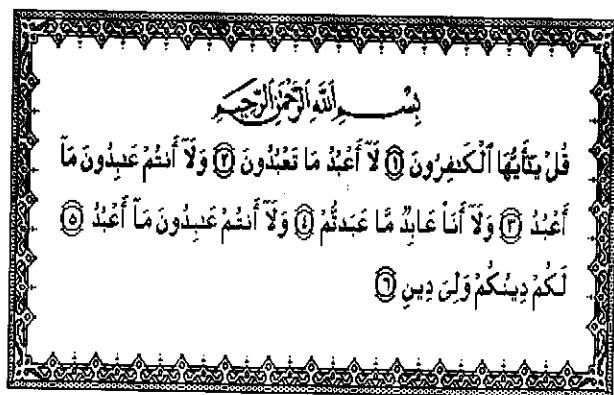 بِسْمِ ٱللَّهِ ٱلرَّحْمَٰنِ ٱلرَّحِيمِ
قُلْ يَٰٓأَيُّهَا ٱلْكَٰفِرُونَ ١ لَآ أَعْبُدُ مَا تَعْبُدُونَ ٢ وَلَآ أَنتُمْ عَٰبِدُونَ مَآ
أَعْبُدُ ٣ وَلَآ أَنَا۠ عَابِدٌ مَّا عَبَدتُّمْ ٤ وَلَآ أَنتُمْ عَٰبِدُونَ مَآ أَعْبُدُ ٥
لَكُمْ دِينُكُمْ وَلِىَ دِينِ ٦